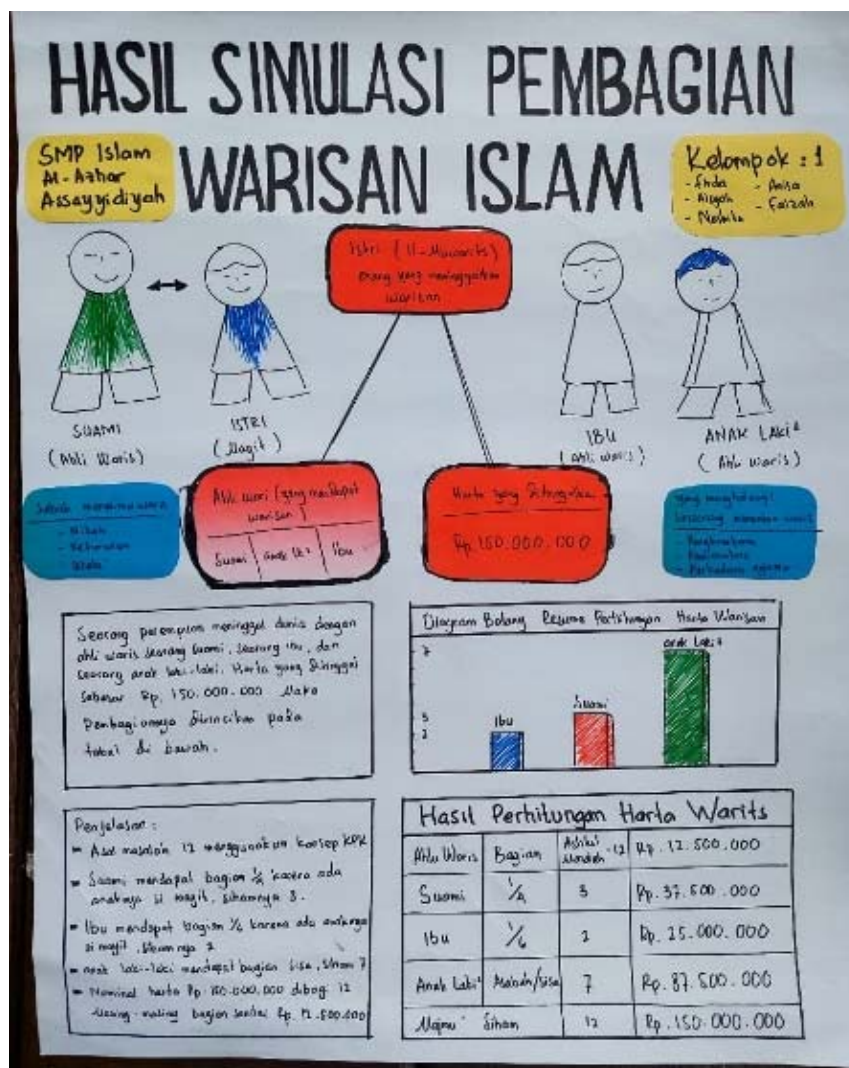 HASIL SIMULASI PEMBAGIAN
WARISAN ISLAM
SMP Islam
Al-Azhar
Assayyidiyah
Kelompok : 1
- Anisa
- Aisyah
- Faizah
Istri
orang yang meninggalkan
warisan
SUAMI
(Ahli Waris)
ISTRI
(Mayit)
IBU
(Ahli waris)
ANAK LAKI²
(Ahli waris)
- Nikah
Ahli waris (yang mendapat
warisan)
Suami
anak lk²
Ibu
Harta yang ditinggalkan
Rp. 150.000.000
yang menghalangi
- Pembunuhan
- Perbedaan agama
Seorang perempuan meninggal dunia dengan
ahli waris seorang suami, seorang ibu, dan
seorang anak laki-laki. Harta yang ditinggal
sebesar Rp. 150.000.000 Maka
Pembagiannya dirincikan pada
tabel di bawah.
Diagram Batang Resume Perhitungan Harta Warisan
7
3
2
Ibu
Suami
anak Laki²
Penjelasan :
- Asal masalah 12 menggunakan konsep KPK
- Suami mendapat bagian 1/4 karena ada
anaknya si mayit, sihamnya 3.
- Ibu mendapat bagian 1/6 karena ada anaknya
si mayit, siham nya 2
- anak laki-laki mendapat bagian sisa, siham 7
- Nominal harta Rp 150.000.000 dibagi 12
Masing-masing bagian senilai Rp. 12.500.000
Hasil Perhitungan Harta Warits
Ahlu Waris Bagian 12 Rp. 12.500.000
Suami 1/4 3 Rp. 37.500.000
Ibu 1/6 2 Rp. 25.000.000
Anak Laki² /sisa 7 Rp. 87.500.000
Majmu' Siham 12 Rp. 150.000.000